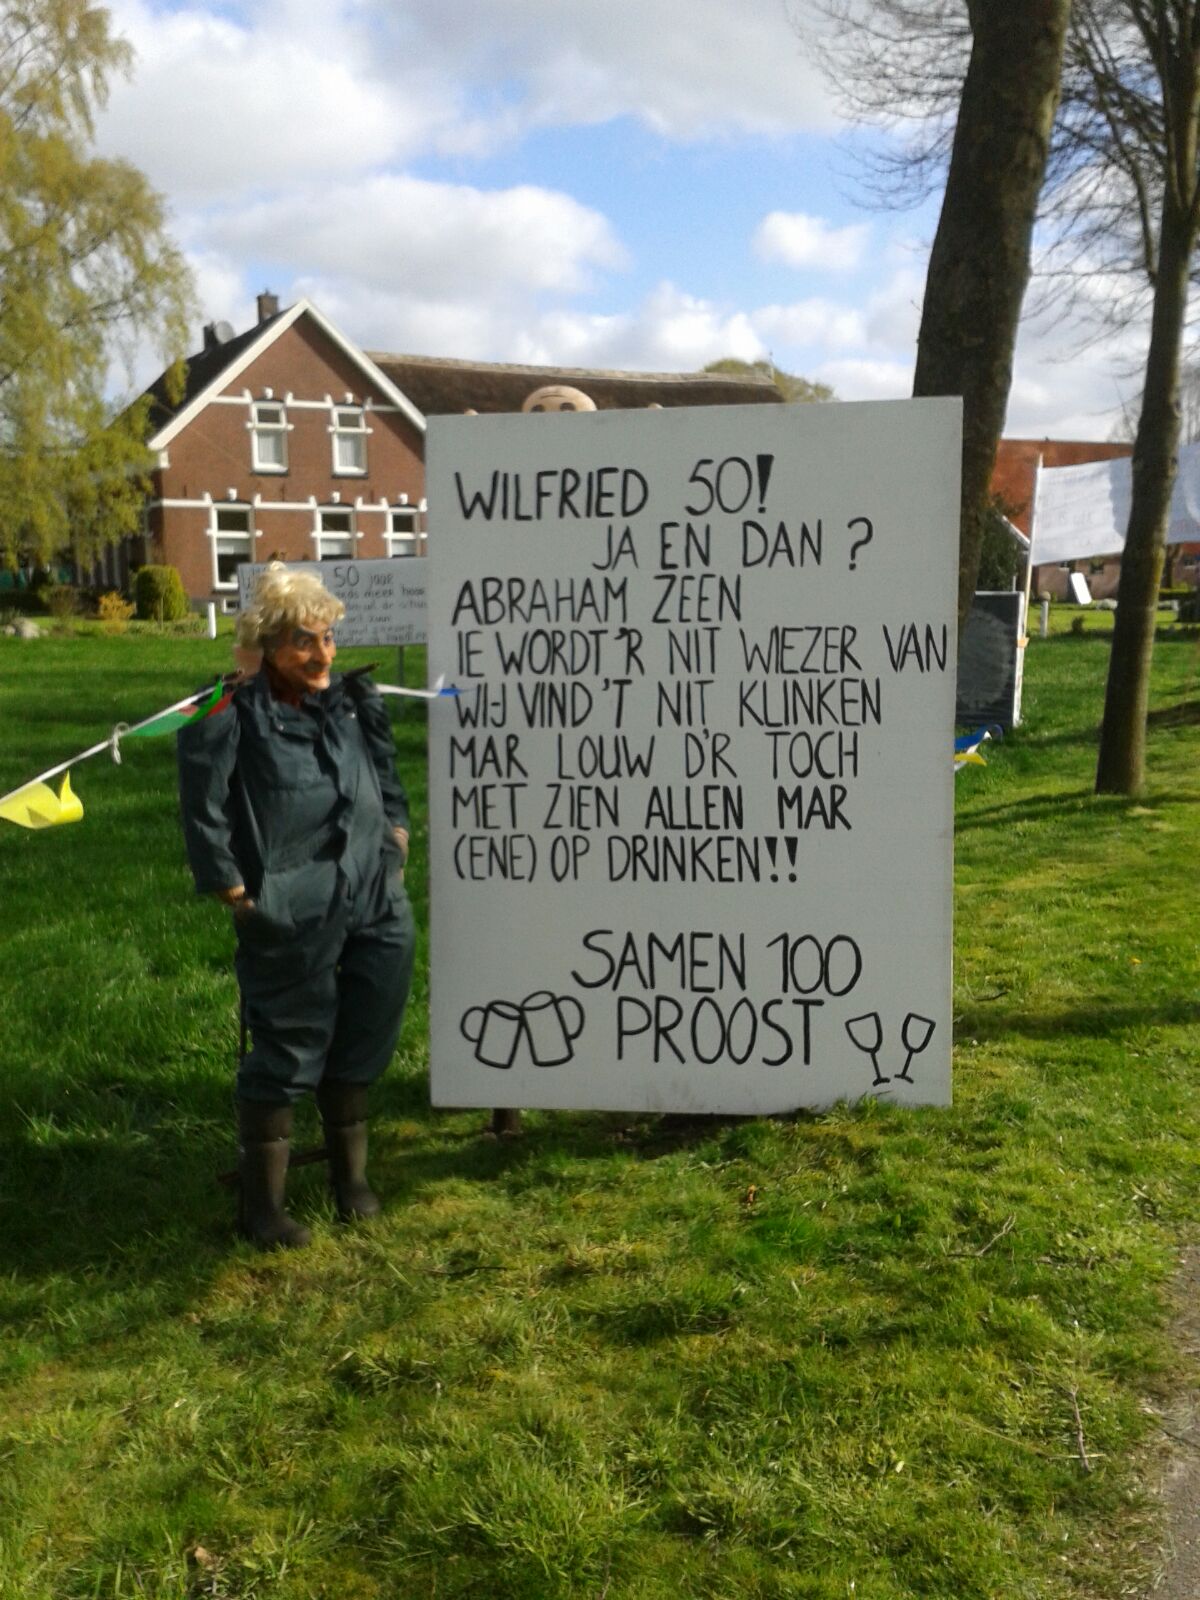 WILFRIED 50!
JA EN DAN ?
ABRAHAM ZEEN
IE WORDT'R NIT WIEZER VAN
WIJ VIND'T NIT KLINKEN
MAR LOUW D'R TOCH
MET ZIEN ALLEN MAR
(ENE) OP DRINKEN!!
SAMEN 100
PROOST
50 jaar
meer